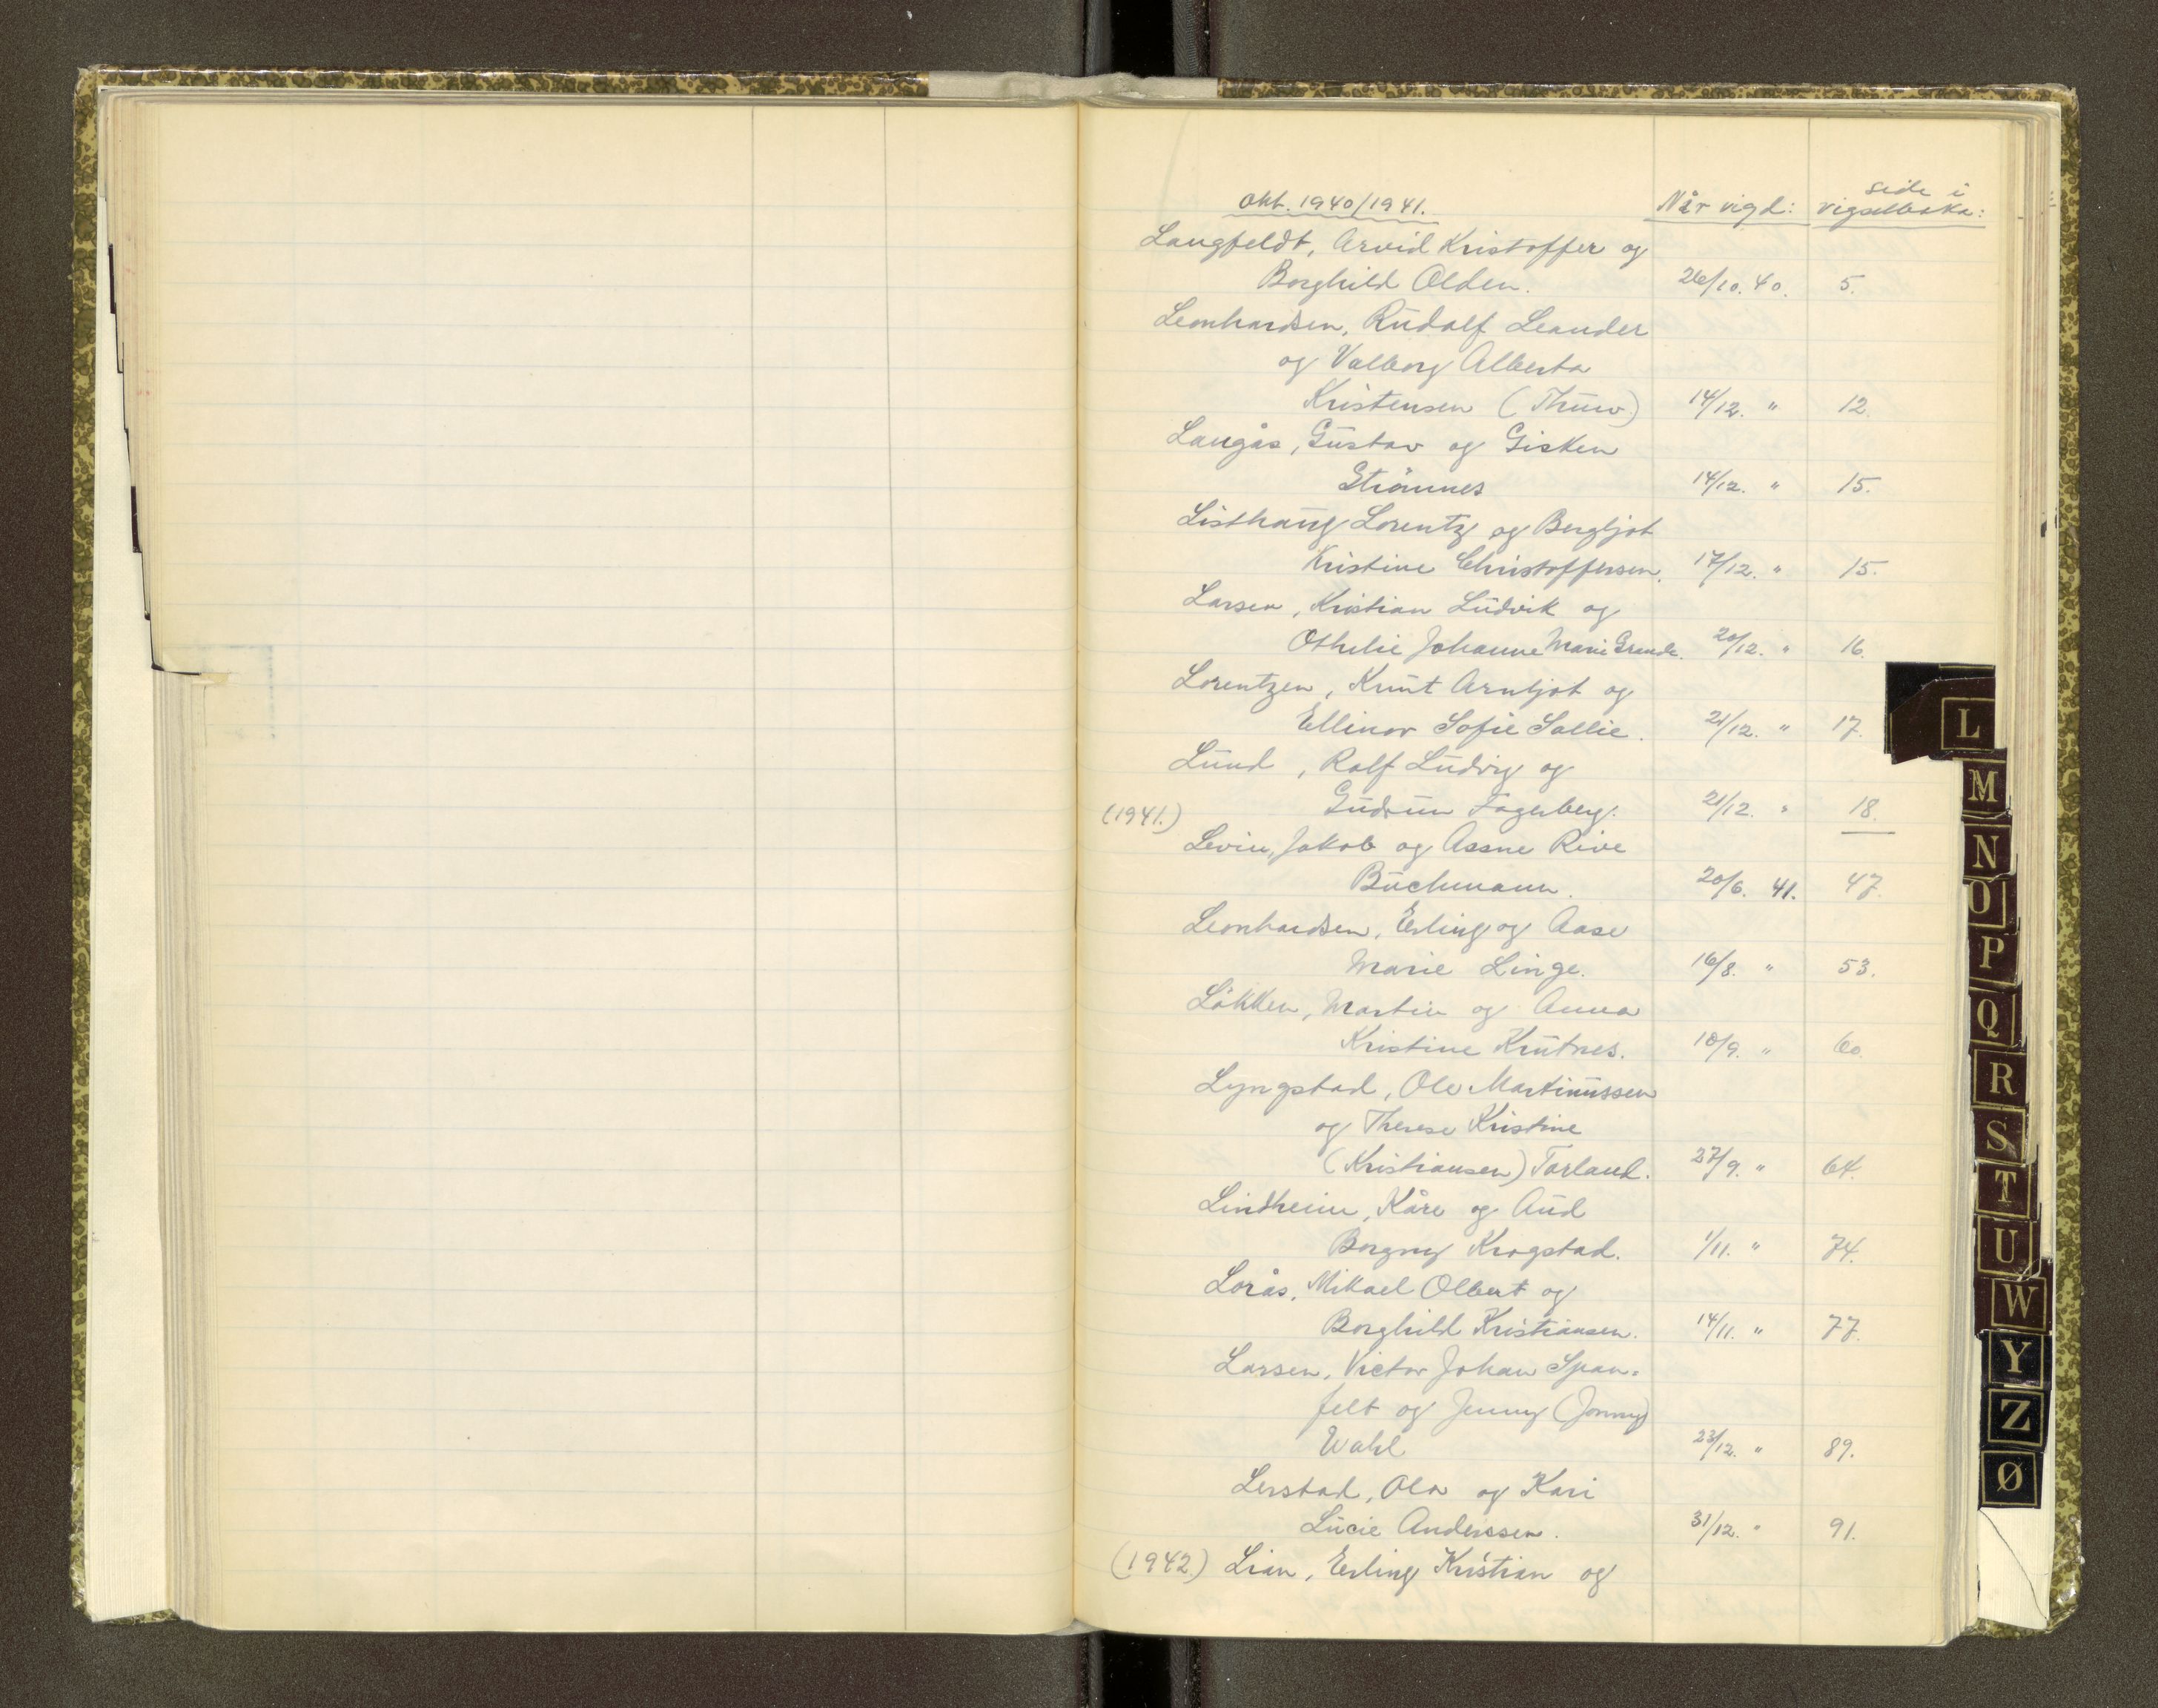 Okt. 1940/1941. Når vigd: side i vigselboka:
Langfeldt, Arvid Kristoffer og
Borghild Olden. 26/10. 40. 5.
Leonhardsen, Rudolf Leander
og Valborg Alberta
Kristensen (Thuv.) 14/12. " 12.
Langås, Gustav og Gisken
Strömnes 14/12. " 15.
Listhaug Lorentz og Bergljot
Kristine Christoffersen. 17/12. " 15.
Larsen, Kristian Ludvik og
Othelie Johanne Marie Grande. 20/12. " 16.
Lorentzen, Knut Arnljot og
Ellinor Sofie Sallie. 21/12. " 17.
Lund, Ralf Ludvig og
(1941.) Gudrun Fagerberg. 21/12. " 18.
Levin, Jakob og Assne Rive
Buchmann. 20/6. 41. 47.
Leonhardsen, Erling og Aase
Marie Linge. 16/8. " 53.
Lökken, Martin og Anna
Kristine Krutnes. 18/9. " 60.
Lyngstad, Ole Martinussen
og Therese Kristine
(Kristiansen) Torland. 27/9. " 64.
Lindheim, Kåre og Aud
Borgny Krogstad. 1/11. " 74.
Lorås, Mikael Olbert og
Borghild Kristiansen. 14/11. " 77.
Larsen, Victor Johan Span-
felt og Jenny (Jonny)
Wahl 23/12. " 89.
Lerstad, Ola og Kari
Lucie Anderssen. 31/12. " 91.
(1942) Lian, Erling Kristian og
L
M
N
O
P
Q
R
S
T
U
W
Y
Z
Ø